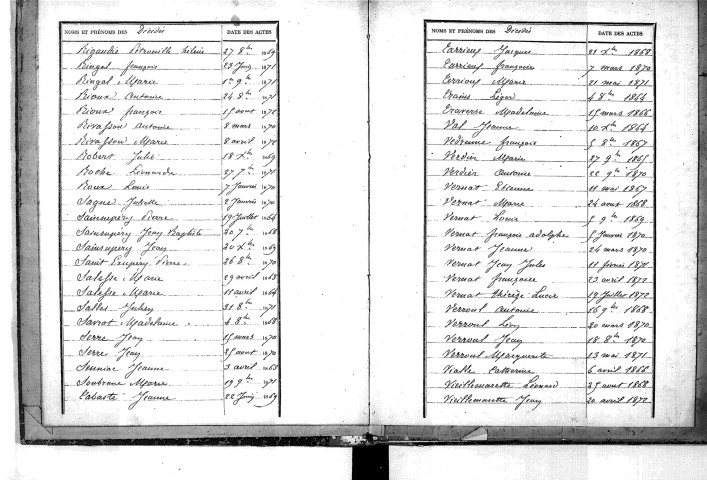 NOMS ET PRÉNOMS DES Décédés DATE DES ACTES
Rigaudie Pétronille hélène 27 8bre 1869
Ringal françois 23 Juin 1871
Ringal Marie 1er 9bre 1871
Rioux Antoine 24 8bre 1871
Rioux françois 15 aout 1872
Rivassou Antoine 8 mars 1870
Rivassou Marie 8 avril 1872
Robert Julie 18 Xbre 1869
Roche Léonarde 27 7bre 1871
Roux Louis 7 Janvier 1870
Sagne Juliette 2 Janvier 1870
Sainsupéry Pierre 19 Juillet 1864
Sainsupéry Jean Baptiste 20 7bre 1868
Sainsupéry Jean 20 Xbre 1869
Saint Exupéry Pierre 26 8bre 1870
Salesse Marie 29 avril 1865
Salesse Marie 11 avril 1864
Salles 31 8bre 1871
Savrot Madelaine 4 8bre 1868
Serre Jean 15 mars 1870
Serre Jean 25 aout 1870
Jeanne 3 avril 1865
Soubrane Marie 19 9bre 1871
Tabaste Jeanne 22 Juin 1869
NOMS ET PRÉNOMS DES Décédés DATE DES ACTES
Tarrieux Jacques 21 Xbre 1868
Tarrieux françoise 7 mars 1870
Terrioux Marie 21 mai 1871
Léger 4 8bre 1864
Traverse Madelaine 15 mars 1866
Val Jeanne 10 Xbre 1864
Vedrenne françois 5 8bre 1867
Verdier Marie 27 9bre 1865
Verdier Antoine 22 9bre 1870
Vernat Etienne 11 mai 1867
Vernat Marie 24 aout 1868
Vernat Louis 5 9bre 1869
Vernat françois adolphe 5 Janvier 1870
Vernat Jeanne 24 mars 1870
Vernat Jean Jules 11 février 1871
Vernat françoise 23 avril 1872
Vernat thérèze Lucie 19 Juillet 1872
Verrout Antoine 16 9bre 1868
Verrout Léon 20 mars 1870
Verrout Jean 18 8bre 1870
Verrout Marguerite 13 mai 1871
Vialle Catherine 6 avril 1868
Vieillemarette Léonard 25 aout 1868
Vieillemarette Jean 20 avril 1872